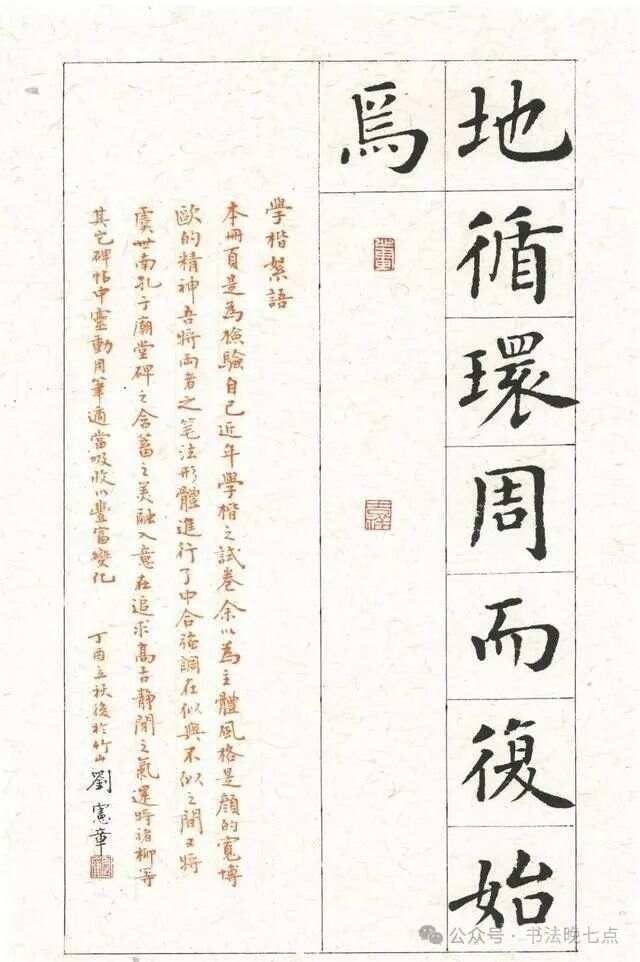 地循環周而復始
焉
學楷絮語
本冊頁是為檢驗自己近年學楷之試卷余以為主體風格是顏的寬博
歐的精神吾將両者之笔法形體進行了中合強調在似與不似之間又將
虞世南孔子廟堂碑之含蓄之美融入意在追求高古靜閒之氣還時褚柳等
其它碑帖中靈動用筆適當吸收以豐富變化 丁酉立秋後於竹山 劉憲章
公众号 · 书法晚七点